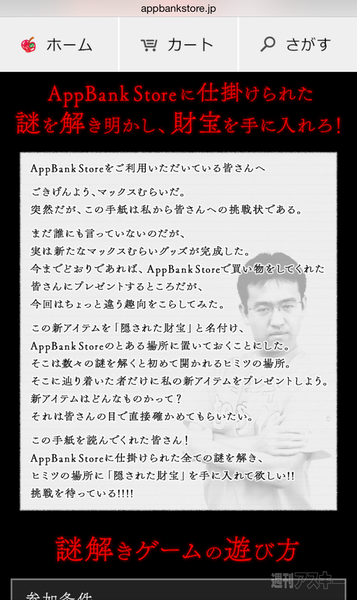 appbankstore.jp
ホーム
カート
さがす
AppBank Storeに仕掛けられた
謎を解き明かし、財宝を手に入れろ！
AppBank Storeをご利用いただいている皆さんへ
ごきげんよう、マックスむらいだ。
突然だが、この手紙は私から皆さんへの挑戦状である。
まだ誰にも言っていないのだが、
実は新たなマックスむらいグッズが完成した。
今までどおりであれば、AppBank Storeで買い物をしてくれた
皆さんにプレゼントするところだが、
今回はちょっと違う趣向をこらしてみた。
この新アイテムを「隠された財宝」と名付け、
AppBank Storeのとある場所に置いておくことにした。
そこは数々の謎を解くと初めて開かれるヒミツの場所。
そこに辿り着いた者だけに私の新アイテムをプレゼントしよう。
新アイテムはどんなものかって？
それは皆さんの目で直接確かめてもらいたい。
この手紙を読んでくれた皆さん！
AppBank Storeに仕掛けられた全ての謎を解き、
ヒミツの場所に「隠された財宝」を手に入れて欲しい!!
挑戦を待っている!!!!
謎解きゲームの遊び方
週刊アスキー
参加条件